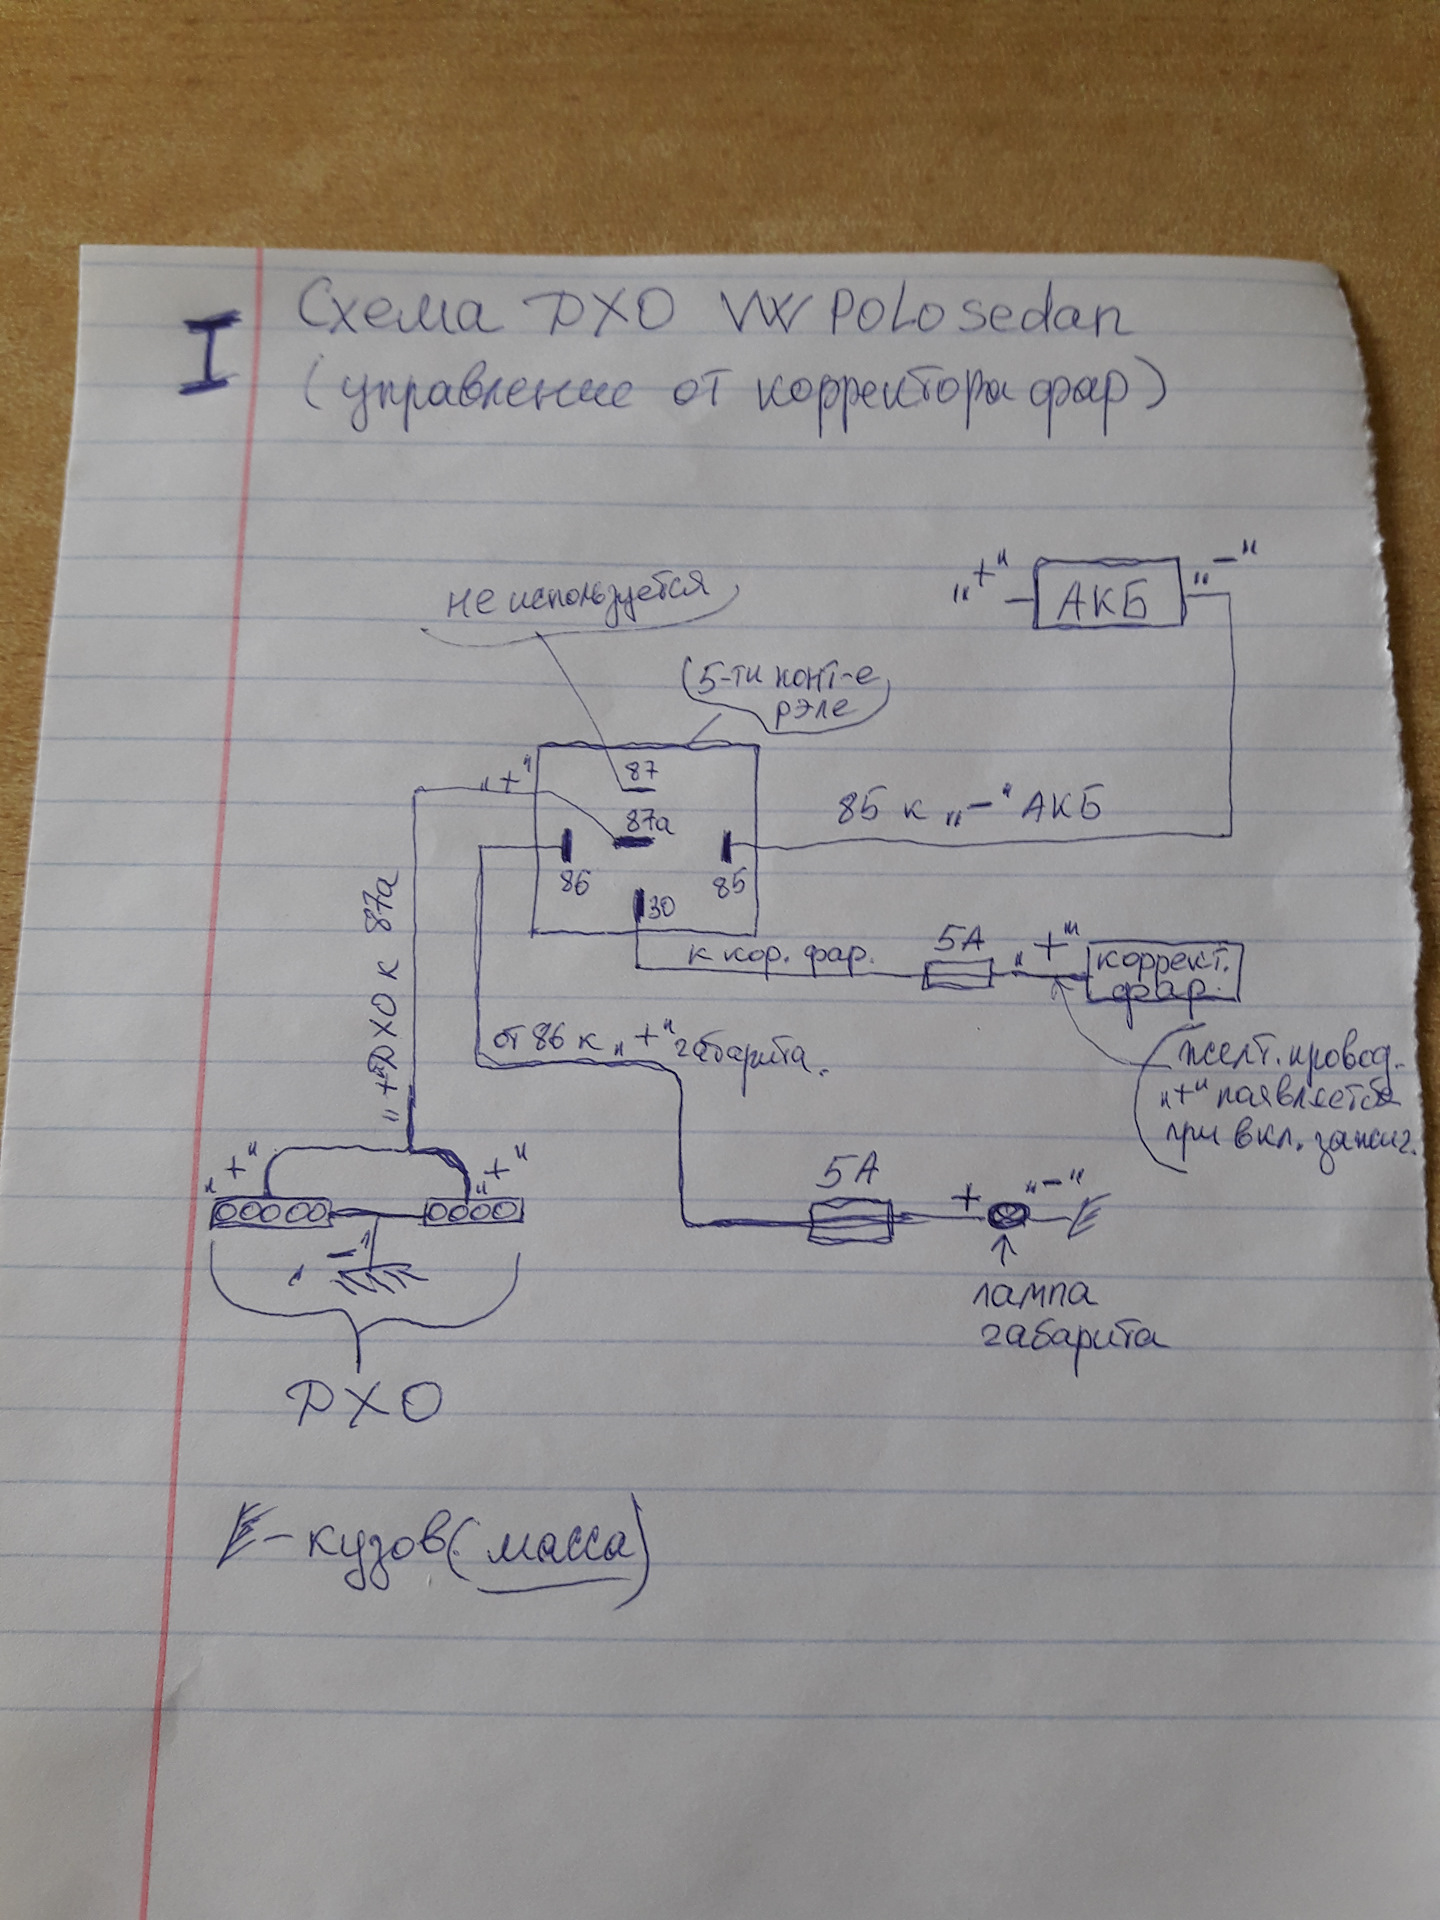 I
Схема ДХО VW POLO sedan
(управление от корректора фар)
не используется
„+" АКБ „-"
(5-ти конт-е
рэле
„+"
87
87а
86
85
30
85 к „-" АКБ
„+" ДХО к 87а
к кор. фар.
5А
„+"
коррект.
фар.
от 86 к „+" габарита.
желт. провод-
„+" появляется
при вкл. зажиг.
„+"
„+"
-
5А
+
„-"
лампа
габарита
ДХО
- кузов (масса)